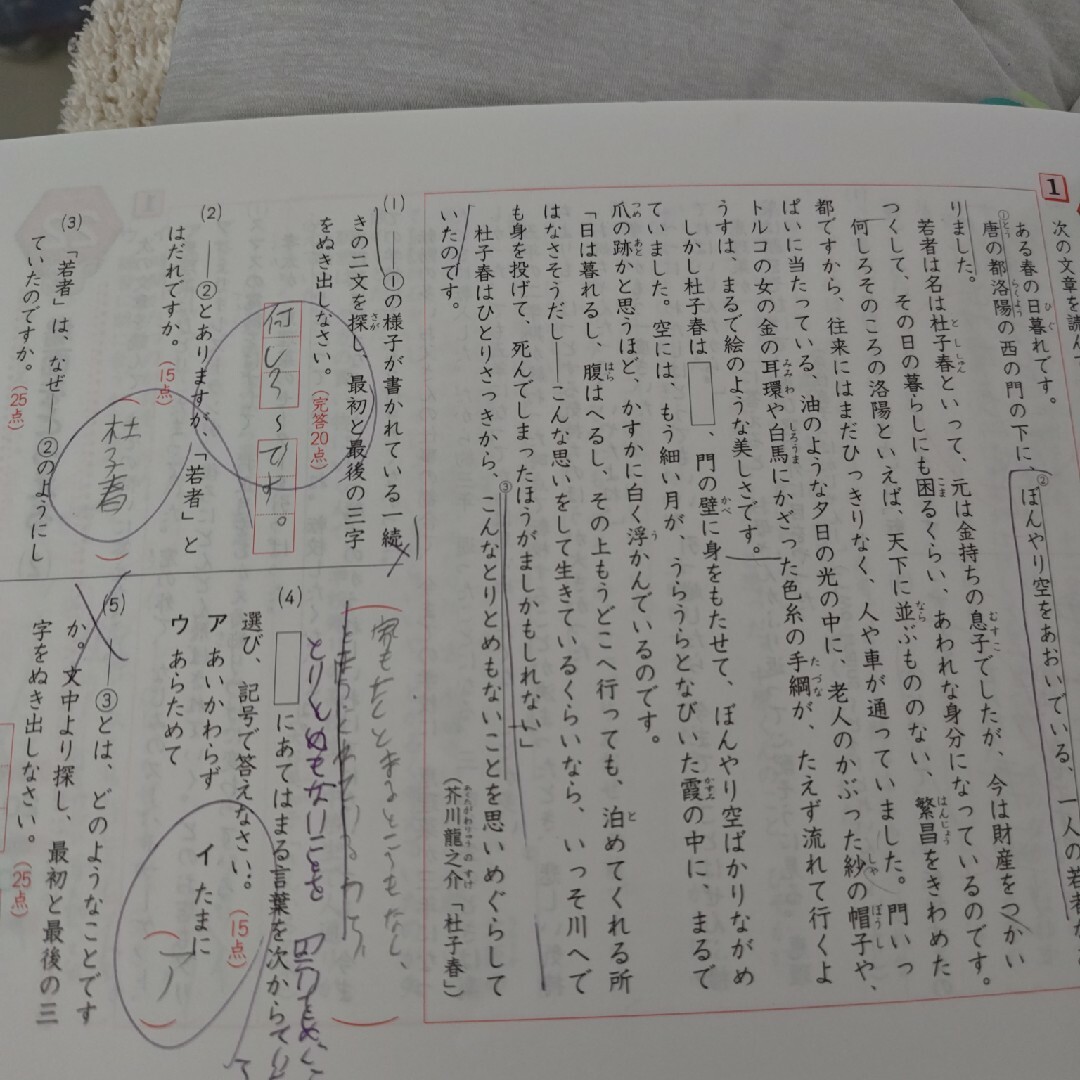 1
次の文章を読んで
ある春の日暮れです。
①唐の都洛陽の西の門の下に、②ぼんやり空をあおいでいる、一人の若者が
りました。
若者は名は杜子春といって、元は金持ちの息子でしたが、今は財産をつかい
つくして、その日の暮らしにも困るくらい、あわれな身分になっているのです。
何しろそのころの洛陽といえば、天下に並ぶもののない、繁昌をきわめた
都ですから、往来にはまだひっきりなく、人や車が通っていました。門いっ
ぱいに当たっている、油のような夕日の光の中に、老人のかぶった紗の帽子や、
トルコの女の金の耳環や白馬にかざった色糸の手綱が、たえず流れて行くよ
うすは、まるで絵のような美しさです。
しかし杜子春は、門の壁に身をもたせて、ぼんやり空ばかりながめ
ていました。空には、もう細い月が、うらうらとなびいた霞の中に、まるで
爪の跡かと思うほど、かすかに白く浮かんでいるのです。
「日は暮れるし、腹はへるし、その上もうどこへ行っても、泊めてくれる所
はなさそうだし――こんな思いをして生きているくらいなら、いっそ川へで
も身を投げて、死んでしまったほうがましかもしれない」
杜子春はひとりさっきから、③こんなとりとめもないことを思いめぐらして
いたのです。
(芥川龍之介「杜子春」)
(1) ――①の様子が書かれている一続
きの二文を探し、最初と最後の三字
をぬき出しなさい。(完答20点)
何しろ〜です。
(2) ――②とありますが、「若者」と
はだれですか。(15点)
(杜子春)
(3) 「若者」は、なぜ――②のようにし
ていたのですか。(25点)
とりとめもないことを
(4) にあてはまる言葉を次から
選び、記号で答えなさい。(15点)
ア あいかわらず イ たまに
ウ あらためて
(ア)
(5) ――③とは、どのようなことです
か。文中より探し、最初と最後の三
字をぬき出しなさい。(25点)